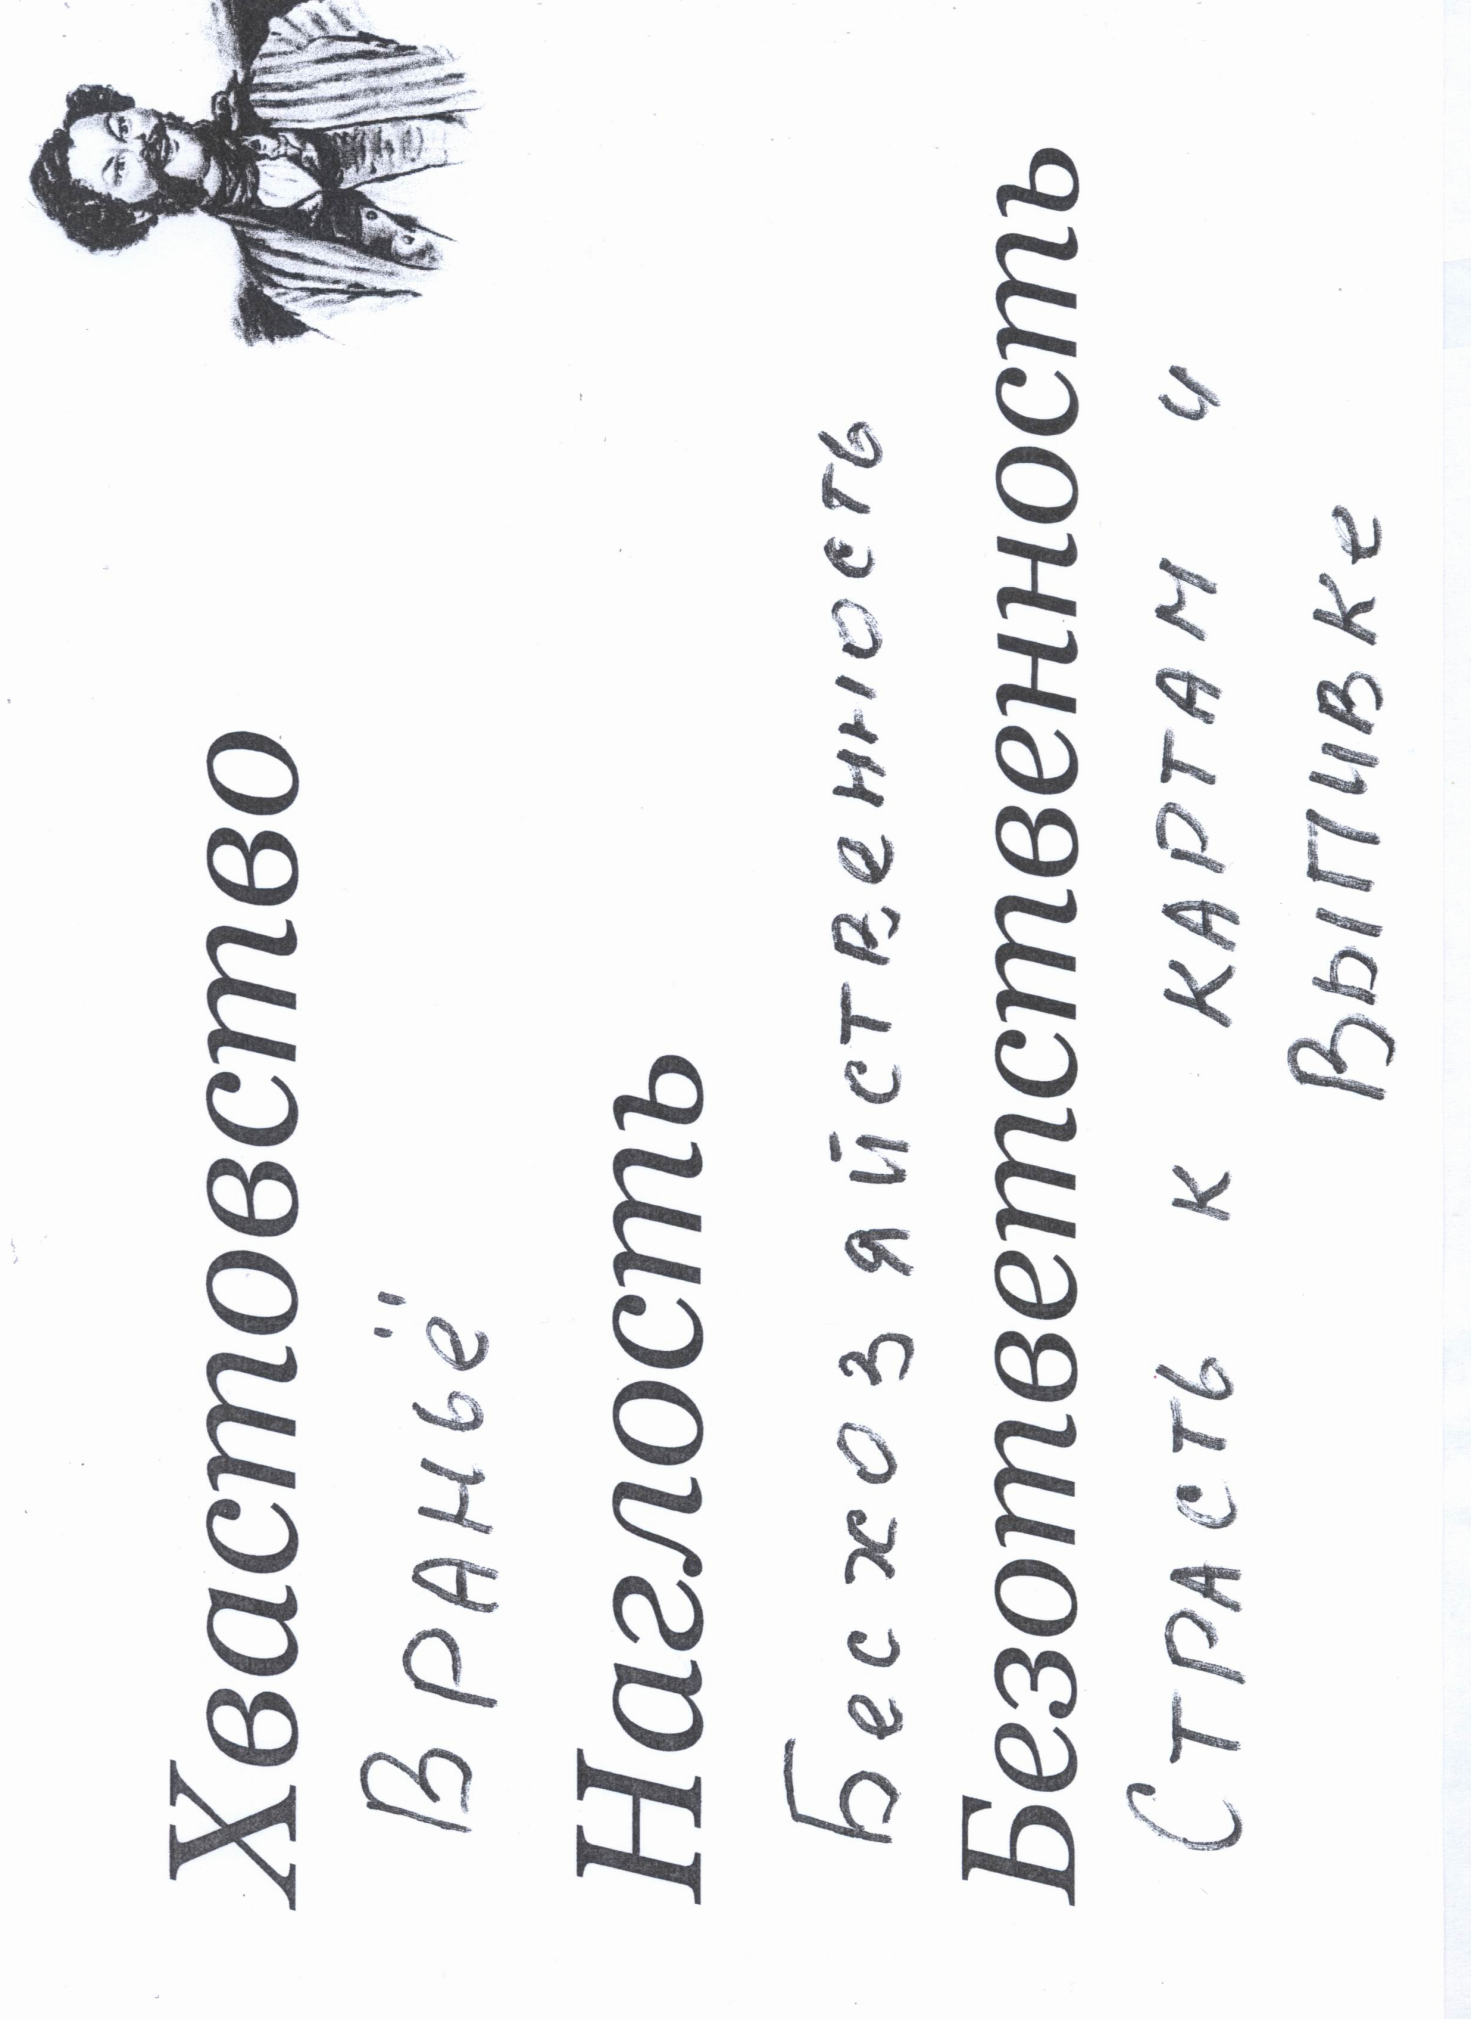 Хвастовство
Враньё
Наглость
Бесхозяйственность
Безответственность
Страсть к картам и
выпивке